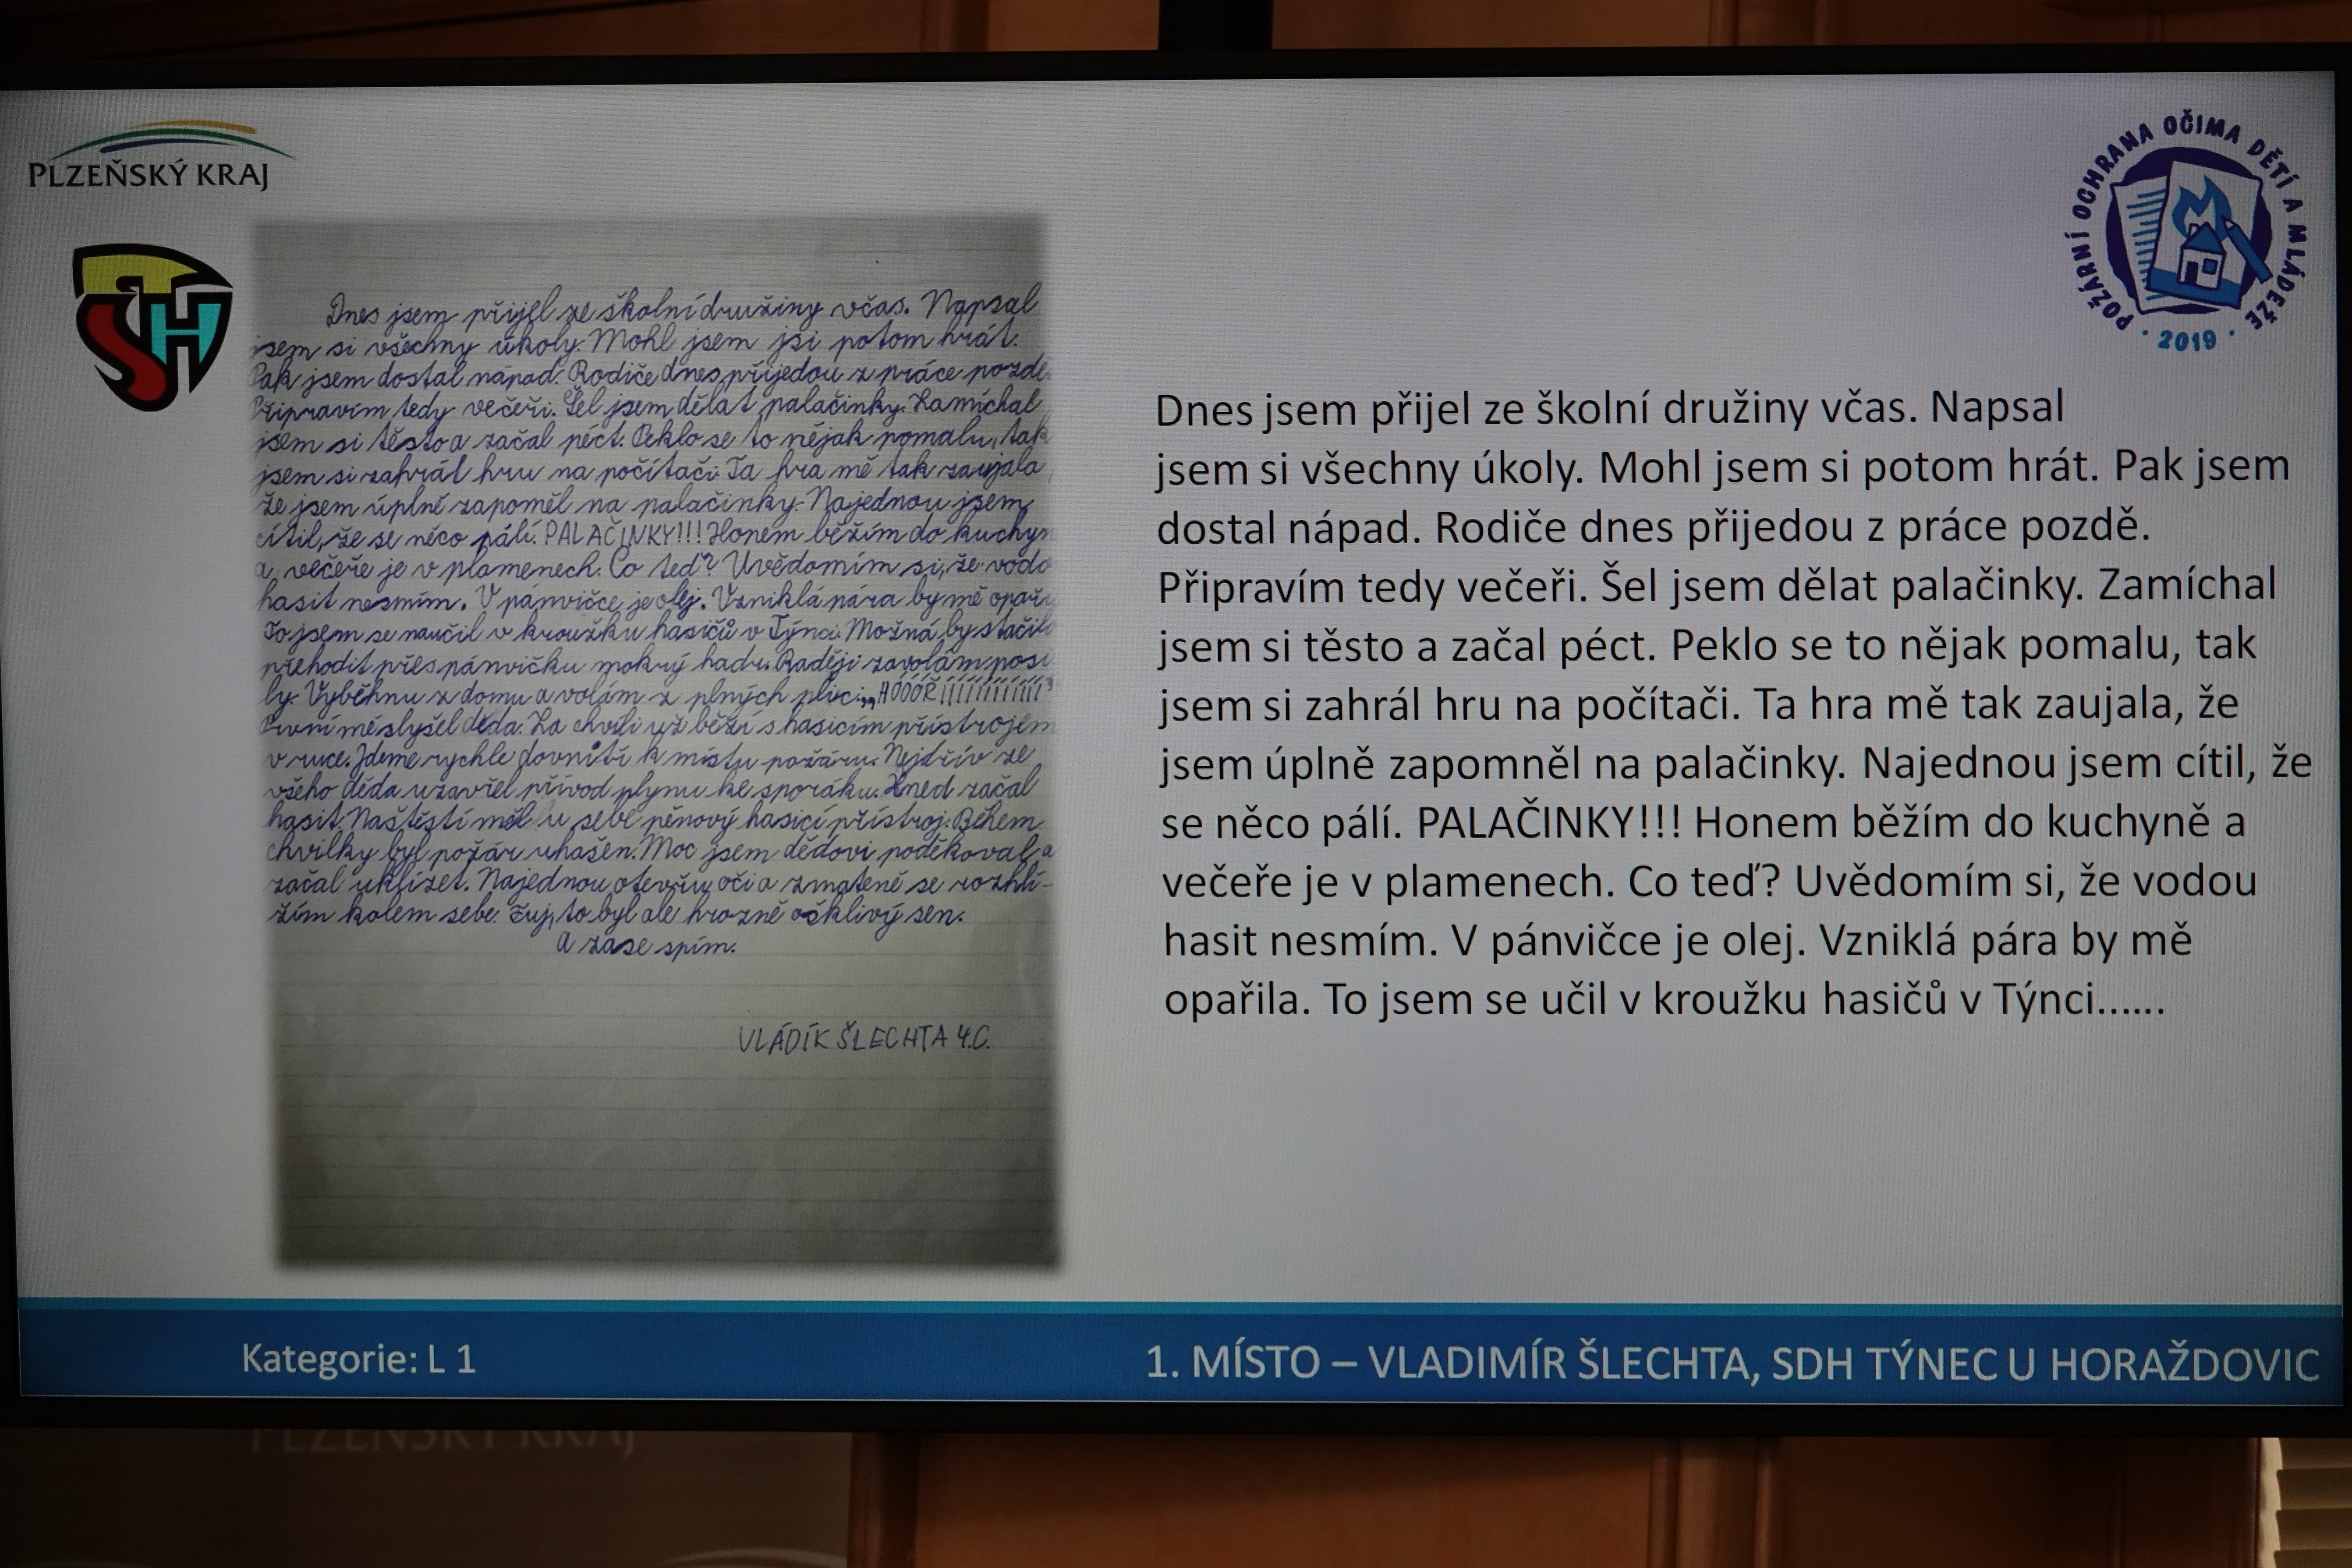 PLZEŇSKÝ KRAJ
STH
POŽÁRNÍ OCHRANA OČIMA DĚTÍ A MLÁDEŽE
· 2019 ·
Dnes jsem přijel ze školní družiny včas. Napsal
jsem si všechny úkoly. Mohl jsem jsi potom hrát.
Pak jsem dostal nápad. Rodiče dnes přijedou z práce pozdě.
Připravím tedy večeři. Šel jsem dělat palačinky. Zamíchal
jsem si těsto a začal péct. Peklo se to nějak pomalu, tak
jsem si zahrál hru na počítači. Ta hra mě tak zaujala,
že jsem úplně zapoměl na palačinky. Najednou jsem
cítil, že se něco pálí. PALAČINKY!!! Honem běžím do kuchyn
a večeře je v plamenech. Co teď? Uvědomím si, že vodo
hasit nesmím. V panvičce je olej. Vzniklá pára by mě opařı
To jsem se naučil v kroužku hasičů v Týnci. Možná by stačilo
přehodit přes pánvičku mokrý hadr. Raději zavolám posi
ly. Vyběhnu z domu a volám z plných plic: „HÓÓÓŘÍÍÍÍÍÍÍÍÍÍÍ"
První mě slyšel děda. Za chvíli už běží s hasicím přístrojem
v ruce. Jdeme rychle dovnitř k místu požáru. Nejdřív ze
všeho děda uzavřel přívod plynu ke sporáku. Hned začal
hasit. Naštěstí měl u sebe pěnový hasicí přístroj. Během
chvilky byl požár uhašen. Moc jsem dědovi poděkoval a
začal uklízet. Najednou otevřu oči a zmateně se rozhlí-
žím kolem sebe. Fuj, to byl ale hrozně ošklivý sen.
A zase spím.
VLÁDÍK ŠLECHTA 4.C.
Dnes jsem přijel ze školní družiny včas. Napsal
jsem si všechny úkoly. Mohl jsem si potom hrát. Pak jsem
dostal nápad. Rodiče dnes přijedou z práce pozdě.
Připravím tedy večeři. Šel jsem dělat palačinky. Zamíchal
jsem si těsto a začal péct. Peklo se to nějak pomalu, tak
jsem si zahrál hru na počítači. Ta hra mě tak zaujala, že
jsem úplně zapomněl na palačinky. Najednou jsem cítil, že
se něco pálí. PALAČINKY!!! Honem běžím do kuchyně a
večeře je v plamenech. Co teď? Uvědomím si, že vodou
hasit nesmím. V pánvičce je olej. Vzniklá pára by mě
opařila. To jsem se učil v kroužku hasičů v Týnci......
Kategorie: L 1
1. MÍSTO – VLADIMÍR ŠLECHTA, SDH TÝNEC U HORAŽDOVIC
PLZEŇSKÝ KRAJ